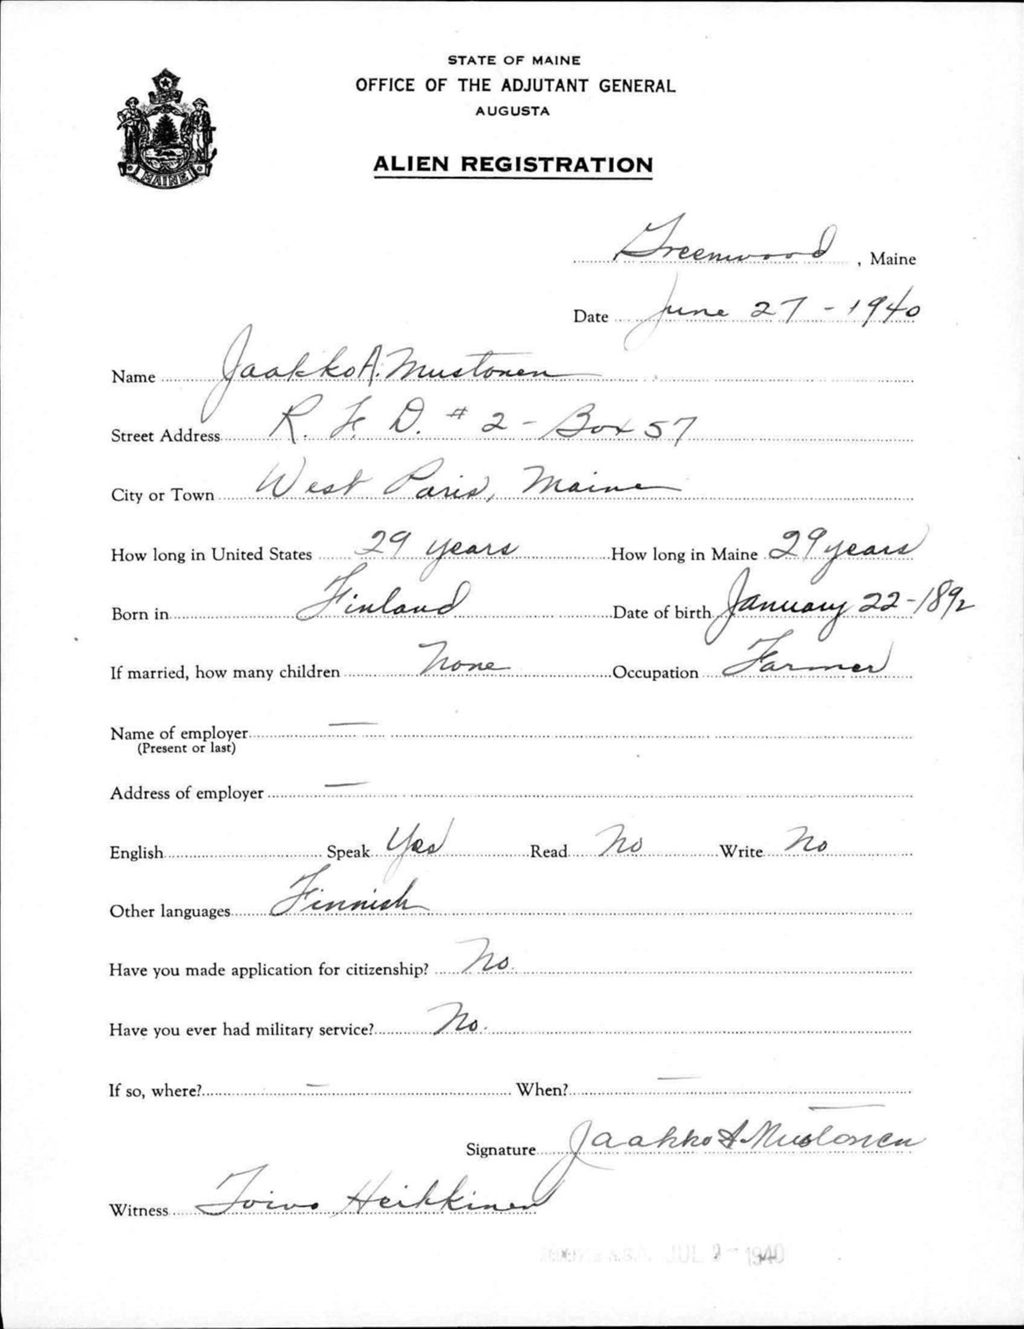 STATE OF MAINE
OFFICE OF THE ADJUTANT GENERAL
AUGUSTA
ALIEN REGISTRATION
MAINE
Greenwood, Maine
Date June 27-1940
Name Jaakko A. Mustonen
Street Address R. F. D. # 2 - Box 57
City or Town West Paris, Maine
How long in United States 29 years How long in Maine 29 years
Born in Finland Date of birth January 22-1892
If married, how many children None Occupation Farmer
Name of employer —
(Present or last)
Address of employer —
English Speak Yes Read No Write No
Other languages Finnish
Have you made application for citizenship? No.
Have you ever had military service? No.
If so, where? — When? —
Signature Jaakko A Mustonen
Witness Toivo Heikkinen
JUL 1940